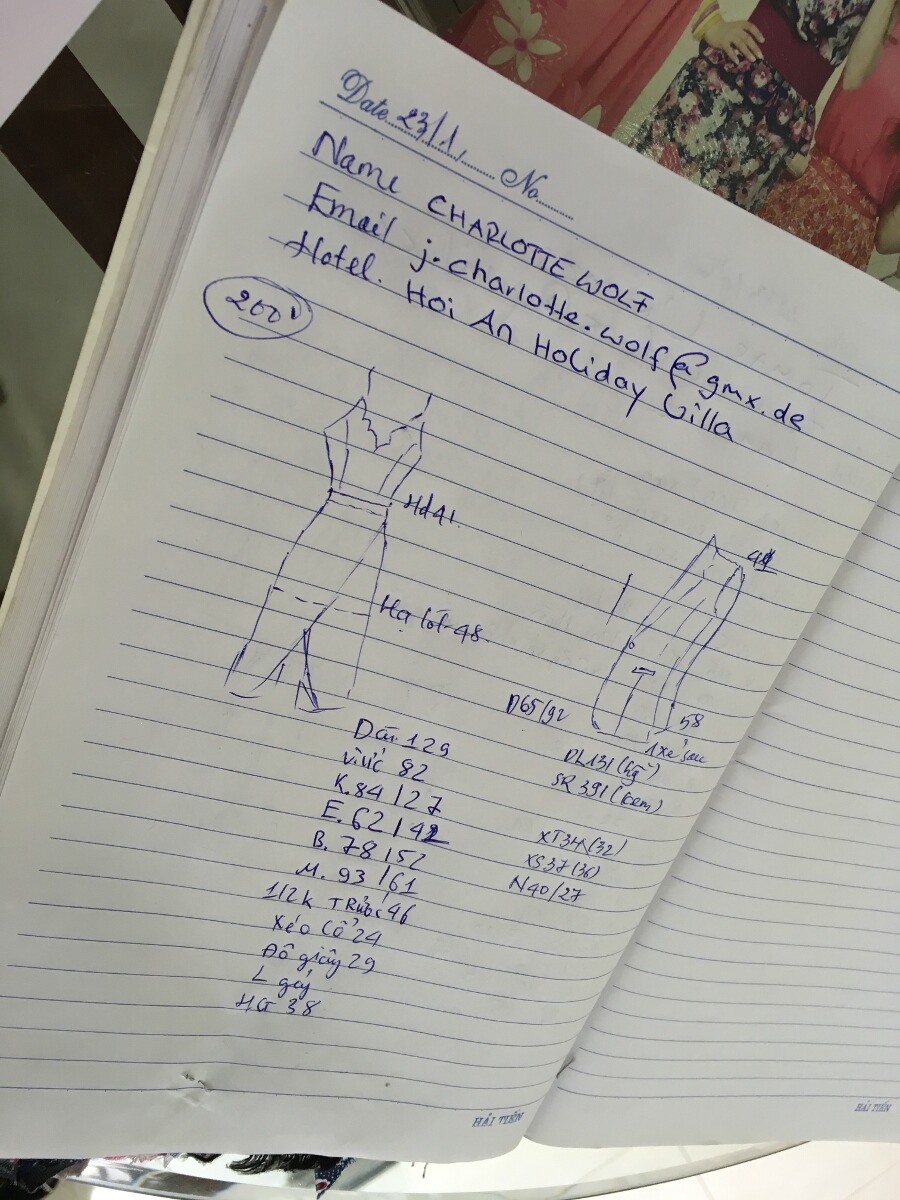 Date 23/1 No
Name CHARLOTTE WOLF
Email j.charlotte.wolf@gmx.de
Hotel. Hoi An Holiday Villa
200
Hd 41
Hạ lót 48
Dài 129
82
K. 84 / 27
E. 62 / 42
B. 78 / 52
M. 93 / 61
1/2 K TRƯỚC 46
Xéo Cổ 24
Đô giây 29
L
HG 38
D65/92
58
1 xẻ sau
DL 131
SR 391 (kem)
(32)
XS 37 (36)
N40/27
HẢI TIẾN
HẢI TIẾN